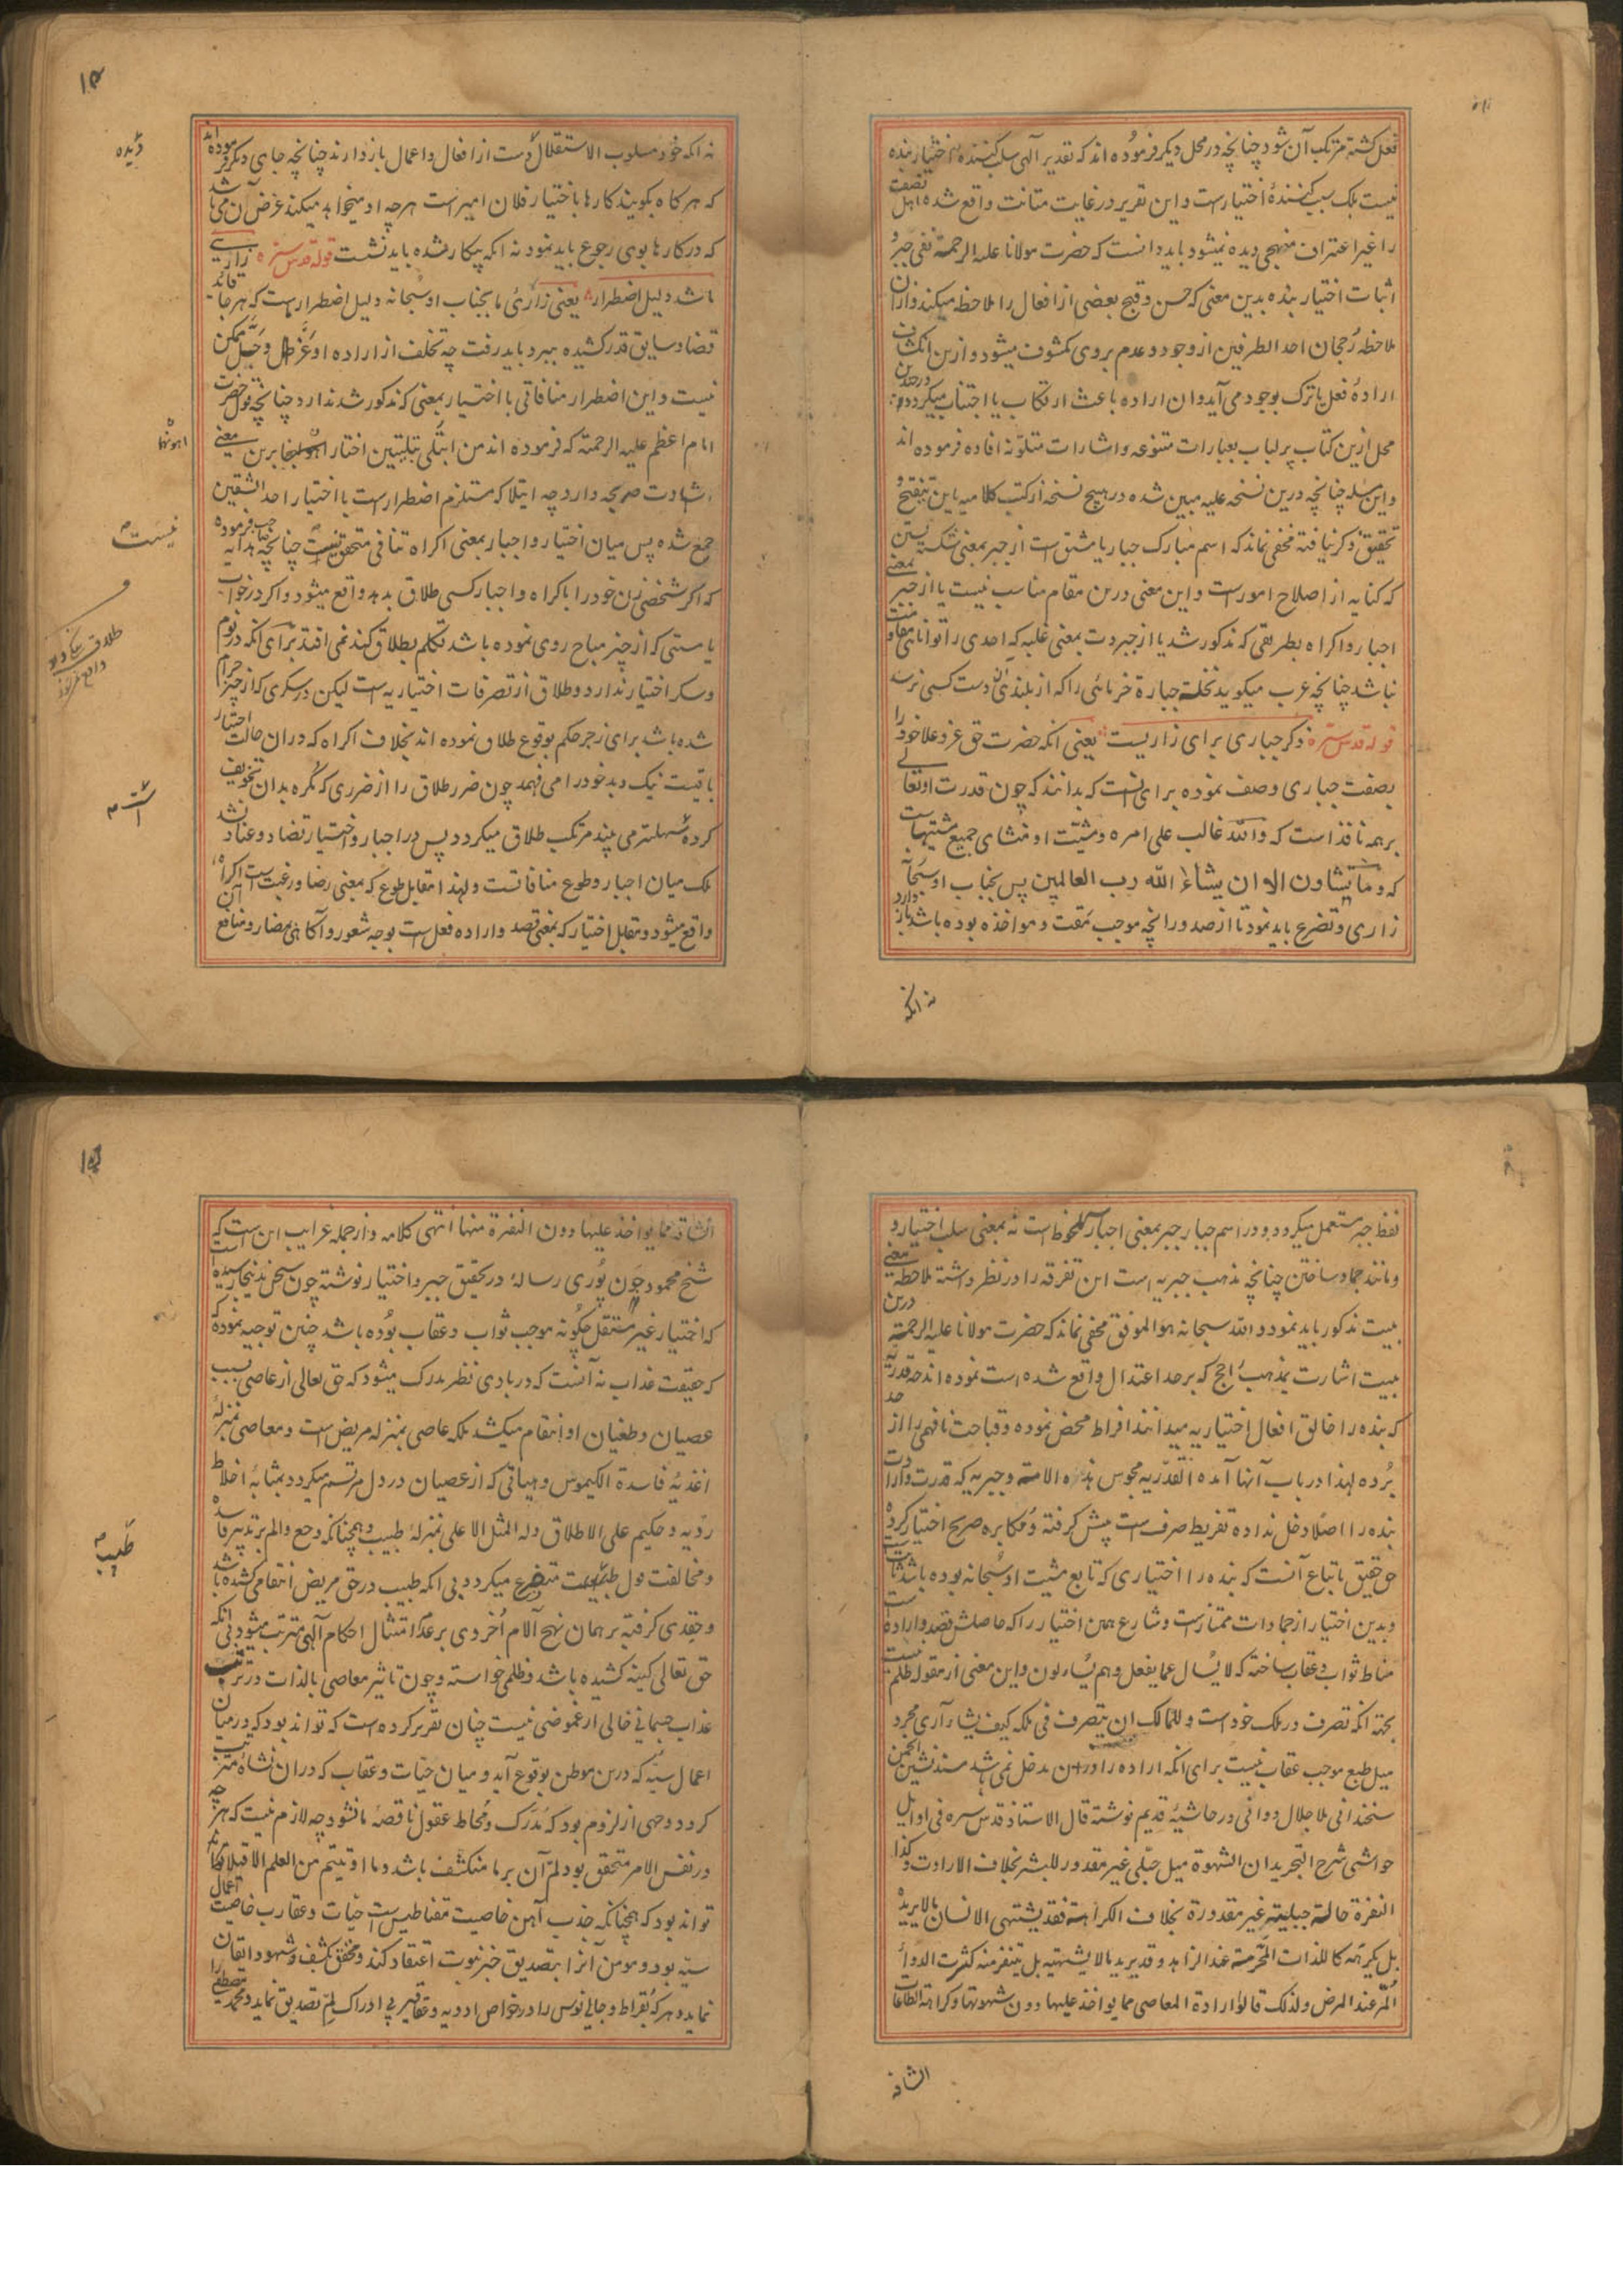 فعل کشته مرتکب آن شود چنانچه در محل دیگر فرموده اند که تقدیر آلهی سلب کننده اختیار بنده
نیست بلک سبب کنندهٔ اختیارست و این تقریر در غایت متانت واقع شده اهل نصفت
را غیر اعتراف منهجی دیده نمیشود باید دانست که حضرت مولانا علیه الرحمة نفی جبر و
اثبات اختیار بنده بدین معنی که حسن و قبح بعضی از افعال را ملاحظه میکند و از ان
ملاحظه رجحان احد الطرفین از وجود و عدم بر وی مکشوف میشود و ازین انکشاف
ارادهٔ فعل یا ترک بوجود می آید و ان اراده باعث ارتکاب یا اجتناب میکردد در چند
محل ازین کتاب پر لباب بعبارات متنوعه و اشارات متلونه افاده فرموده اند
و این مسله چنانچه درین نسخه علیه مبین شده در هیچ نسخه از کتب کلامیه باین تنقیح و
تحقیق ذکر نیافته مخفی نماند که اسم مبارک جبار یا مشتق است از جبر بمعنی شکسته بستن
که کنایه از اصلاح امورست و این معنی درین مقام مناسب نیست یا از جبر بمعنی
اجبار و اکراه بطریقی که مذکور شد یا از جبروت بمعنی غلبه که احدی را توانائی مقاومت
نباشد چنانچه عرب میکوید نخلة جبارة خرمائی را که از بلندئ آن دست کسی نرسد
قوله قدس سره ذکر جباری برای زاریست یعنی انکه حضرت حق عز و علا خود را
بصفت جباری وصف نموده برای انست که بدانند که چون قدرت او تعالے
بر همه نافذ است که والله غالب علی امره و مشیّت او منشای جمیع مشیتهاست
که و ما تشاؤن الا ان یشاء الله رب العالمین پس بجناب او سبحانه
زاری و تضرع باید نمود تا از صدور انچه موجب مقت و مواخذه بوده باشد باز دارد
نه انکه
۱۴
نه انکه خود مسلوب الاستقلال دست از افعال و اعمال باز دارند چنانچه جای دیکر فرموده اند
که هر کاه بکویند کارها باختیار فلان امیر است هر چه او میخواهد میکند غرض آن می باشد
که در کارها بوی رجوع باید نمود نه انکه بیکار شده باید نشست قوله قدس سره زاریے
ما شد دلیل اضطرار یعنی زارئ ما بجناب او سبحانه دلیل اضطرارست که هر جا قائد
قضا و سایق قدر کشیده ببرد باید رفت چه تخلف از اراده او عز و جل ممکن
نیست و این اضطرار منافاتی با اختیار بمعنی که مذکور شد ندارد چنانچه قول حضرت
امام اعظم علیه الرحمة که فرموده اند من ابتلی ببلیتین اختار اهونهما برین معنی
شهادت صریحه دارد چه ابتلا که مستلزم اضطرارست با اختیار احد الشقین
جمع شده پس میان اختیار و اجبار بمعنی اکراه تنافی متحقق نیست چنانچه صاحب هدایه فرموده
که اکر شخصی زن خود را باکراه و اجبار کسی طلاق بدهد واقع میشود و اکر در خواب
یا مستی که از چیز مباح روی نموده باشد تکلم بطلاق کند نمی افتد برای انکه در نوم
و سکر اختیار ندارد و طلاق از تصرفات اختیاریه است لیکن در سکری که از چیز حرام
شده باشد برای زجر حکم بوقوع طلاق نموده اند بخلاف اکراه که در ان حالت اختیار
باقیست نیک و بد خود را می فهمد چون ضرر طلاق را از ضرری که مکره بدان تخویف
کرده سهلتر می بیند مرتکب طلاق میکردد پس در اجبار و اختیار تضاد و عناد نشد
بلک میان اجبار و طوع منافاتست و لهذا مقابل طوع که بمعنی رضا و رغبت است اکراه
واقع میشود و مقابل اختیار که بمعنی قصد و اراده فعل است بوجه شعور و آکاهی بمضار و منافع آن
دیده
اهونهما
نیست
طلاق
است
لفظ جبر مستعمل میکردد و در اسم جبار جبر بمعنی اجبار ملحوظ است نه بمعنی سلب اختیار و
و مانند جماد ساختن چنانچه مذهب جبریه است این تفرقه را در نظر داشته ملاحظه معنی
بیت مذکور باید نمود و الله سبحانه هو الموفق مخفی نماند که حضرت مولانا علیه الرحمة درین
بیت اشارت بمذهب احج که بر حد اعتدال واقع شده است نموده اند چه قدریه
که بنده را خالق افعال اختیاریه میدانند افراط محض نموده و قباحت نافهمی را از حد
برده لهذا در باب آنها آمده القدریه مجوس هذه الامة و جبریه که قدرت و ارادت
بنده را اصلا دخل نداده تفریط صرف است پیش کرفته و مکابره صریح اختیار کرده
حق حقیق باتباع آنست که بنده را اختیاری که تابع مشیت او سبحانه بوده باشد ثابت
و بدین اختیار از جمادات ممتازست و شارع همین اختیار را که حاصلش قصد و اراده است
مناط ثواب و عقاب ساخته که لا یسال عما یفعل و هم یسالون و این معنی از مقوله ظلم نیست
بجهة انکه تصرف در ملک خود است و للمالک ان یتصرف فی ملکه کیف یشاء آری مجرد
میل طبع موجب عقاب نیست برای انکه اراده را در ان مدخل نمی باشد مسند نشین انجمن
سخندانی ملا جلال دوانی در حاشیهٔ قدیم نوشته قال الاستاذ قدس سره فی اوایل
حواشی شرح التجرید ان الشهوة میل جبلی غیر مقدور للبشر بخلاف الارادت و کذا
النفرة حالة جبلیة غیر مقدورة بخلاف الکراهة فقد یشتهی الانسان ما لا یریده
بل یکرهه کاللذات المحرمة عند الزاهد و قد یرید ما لا یشتهیه بل یتنفر منه کشرب الدواء
المر عند المرض و لذلک قالوا ارادة المعاصی مما یواخذ علیها دون شهوتها و کراهة الطاعات
الشاقه
۱۵
الشاقه مما یواخذ علیها دون النفرة منها انتهی کلامه و از جمله غرایب این ست که
شیخ محمود جون پوری رسالهٔ در تحقیق جبر و اختیار نوشته چون سخن بدینجا رسیده است
که اختیار غیر مستقل چکونه موجب ثواب و عقاب بوده باشد چنین توجیه نموده
که حقیقت عذاب نه آنست که در بادی نظر مدرک میشود که حق تعالی از عاصی بسبب
عصیان و طغیان او انتقام میکشد بلکه عاصی بمنزله مریض است و معاصی بمنزله
اغذیهٔ فاسدة الکیموس و هیأتی که از عصیان در دل مرتسم میکردد بمثابهٔ اخلاط
ردیه و حکیم علی الاطلاق وله المثل الاعلی بمنزلهٔ طبیب و همچنانکه وجع و الم بر تدبیر فاسد
و مخالفت قول طبیب متفرع میکردد بی انکه طبیب در حق مریض انتقامی کشیده باشد
و حقدی کرفته بر همان نهج آلام اخروی بر عدم امتثال احکام آلهی مترتب میشود بی انکه
حق تعالی کینه کشیده باشد و ظلمی خواسته و چون تاثیر معاصی بالذات در ترتب
عذاب جسمانی خالی از غموضی نیست چنان تقریر کرده است که تواند بود که در میان
اعمال سیئه که درین موطن بوقوع آید و میان حیات و عقاب که در ان نشاه مترتب
کردد وجهی از لزوم بود که مدرک و محاط عقول ناقصهٔ ما نشود چه لازم نیست که هر چه
در نفس الامر متحقق بود لم آن بر ما منکشف باشد و ما اوتیتم من العلم الا قلیلا
تواند بود که همچنانکه جذب آهن خاصیت مقناطیس است حیات و عقارب خاصیت اعمال
سیئه بود و مومن آنرا بتصدیق خبر نبوت اعتقاد کند و محقق بکشف و شهود اتقان
نماید و هر که بقراط و جالینوس را در خواص ادویه و عقاقیر بی ادراک لم تصدیق نماید و محمد مصطفی را
طبیب